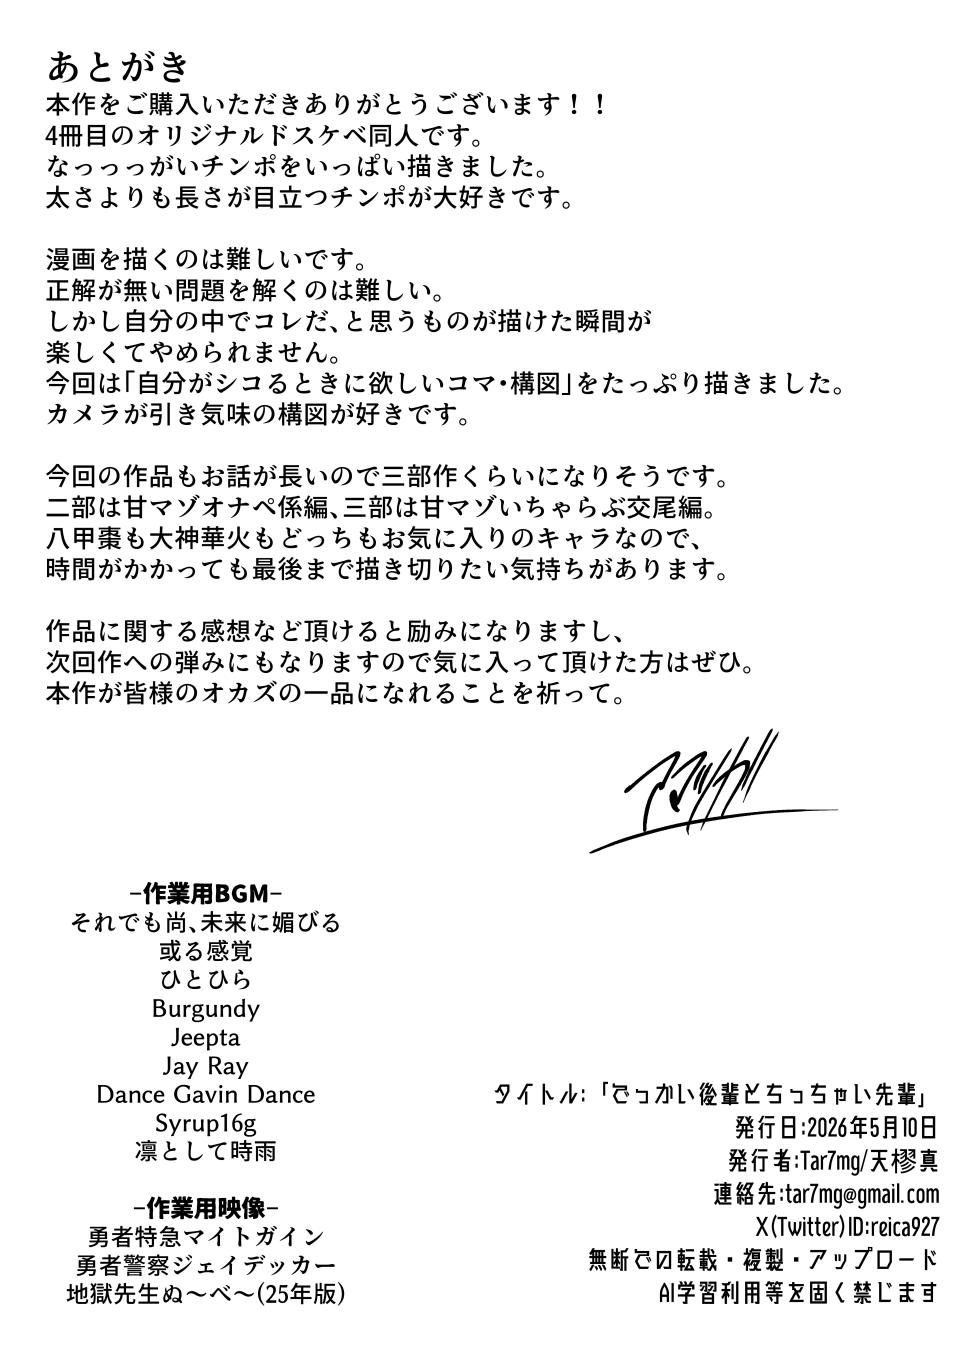 あとがき
本作をご購入いただきありがとうございます！！
4冊目のオリジナルドスケベ同人です。
なっっっがいチンポをいっぱい描きました。
太さよりも長さが目立つチンポが大好きです。
漫画を描くのは難しいです。
正解が無い問題を解くのは難しい。
しかし自分の中でコレだ、と思うものが描けた瞬間が
楽しくてやめられません。
今回は「自分がシコるときに欲しいコマ・構図」をたっぷり描きました。
カメラが引き気味の構図が好きです。
今回の作品もお話が長いので三部作くらいになりそうです。
二部は甘マゾオナペ係編、三部は甘マゾいちゃらぶ交尾編。
八甲棗も大神華火もどっちもお気に入りのキャラなので、
時間がかかっても最後まで描き切りたい気持ちがあります。
作品に関する感想など頂けると励みになりますし、
次回作への弾みにもなりますので気に入って頂けた方はぜひ。
本作が皆様のオカズの一品になれることを祈って。
-作業用BGM-
それでも尚、未来に媚びる
或る感覚
ひとひら
Burgundy
Jeepta
Jay Ray
Dance Gavin Dance
Syrup16g
凛として時雨
-作業用映像-
勇者特急マイトガイン
勇者警察ジェイデッカー
地獄先生ぬ～べ～(25年版)
タイトル:「でっかい後輩とちっちゃい先輩」
発行日:2026年5月10日
発行者:Tar7mg/天樛真
連絡先:tar7mg@gmail.com
X(Twitter)ID:reica927
無断での転載・複製・アップロード
AI学習利用等を固く禁じます